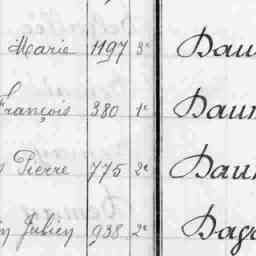 Marie 1197 3e Dau
François 380 1e Dau
Pierre 775 2e Dau
Julien 938 2e Dag